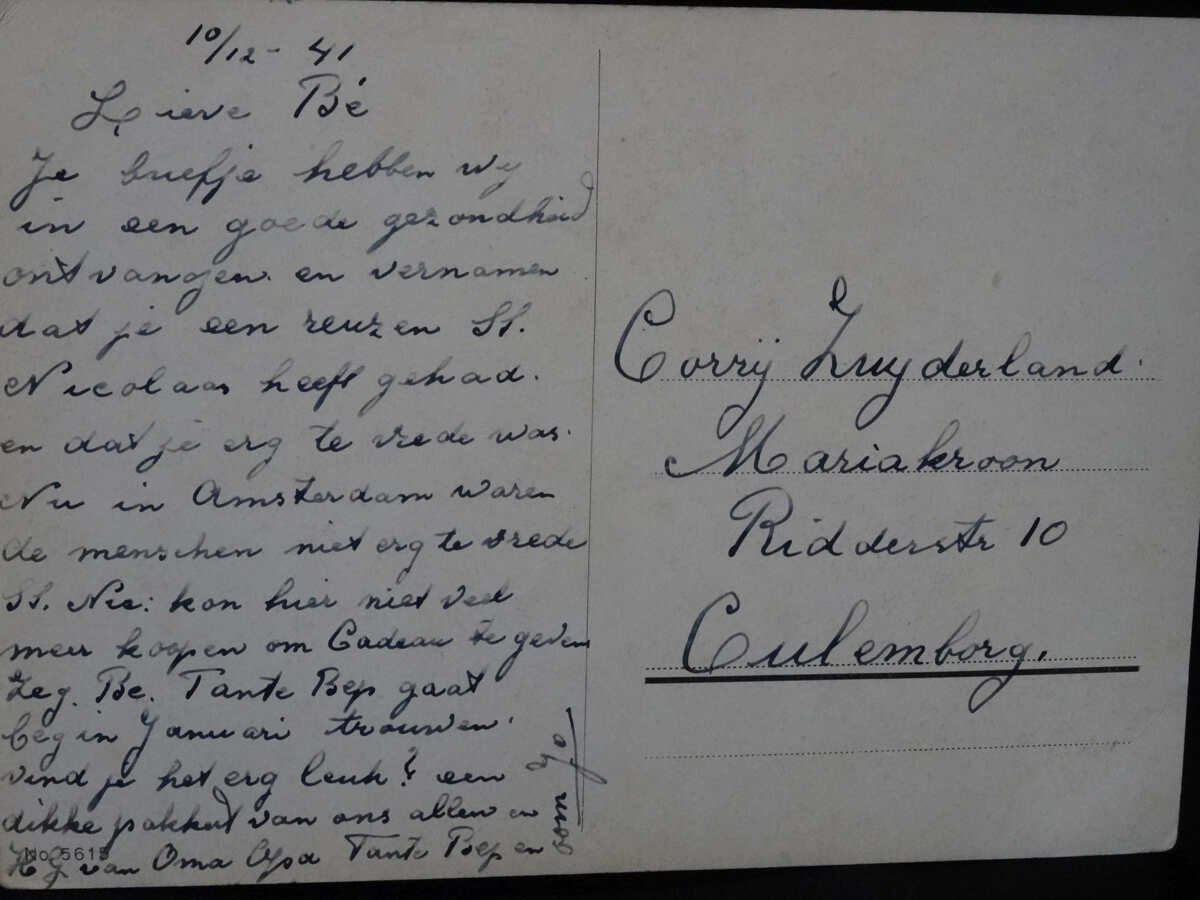 10/12 - 41
Lieve Bé
Je briefje hebben wij
in een goede gezondheid
ontvangen en vernamen
dat je een reuzen St.
Nicolaas heeft gehad.
en dat je erg te vrede was.
Nu in Amsterdam waren
de menschen niet erg te vrede
St. Nic: kon hier niet veel
meer koopen om Cadeau te geven
Zeg. Be. Tante Bep gaat
begin Januari trouwen.
vind je het erg leuk? een
dikke pakkert van ons allen en
van Oma Opa Tante Bep en
oom Jo
No. 5615
Corrij Zuyderland.
Mariakroon
Ridderstr 10
Culemborg.